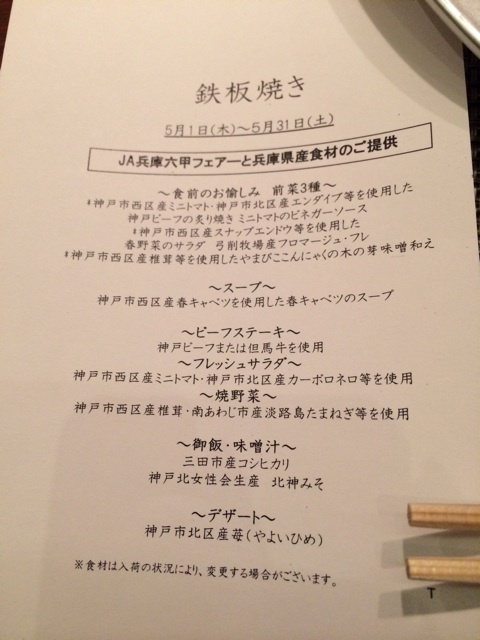 鉄板焼き
5月1日(木)～5月31日(土)
JA兵庫六甲フェアーと兵庫県産食材のご提供
～食前のお愉しみ 前菜3種～
*神戸市西区産ミニトマト・神戸市北区産エンダイブ等を使用した
神戸ビーフの炙り焼き ミニトマトのビネガーソース
*神戸市西区産スナップエンドウ等を使用した
春野菜のサラダ 弓削牧場産フロマージュ・フレ
*神戸市西区産椎茸等を使用したやまびここんにゃくの木の芽味噌和え
～スープ～
神戸市西区産春キャベツを使用した春キャベツのスープ
～ビーフステーキ～
神戸ビーフまたは但馬牛を使用
～フレッシュサラダ～
神戸市西区産ミニトマト・神戸市北区産カーボロネロ等を使用
～焼野菜～
神戸市西区産椎茸・南あわじ市産淡路島たまねぎ等を使用
～御飯・味噌汁～
三田市産コシヒカリ
神戸北女性会生産 北神みそ
～デザート～
神戸市北区産苺(やよいひめ)
※食材は入荷の状況により、変更する場合がございます。
T